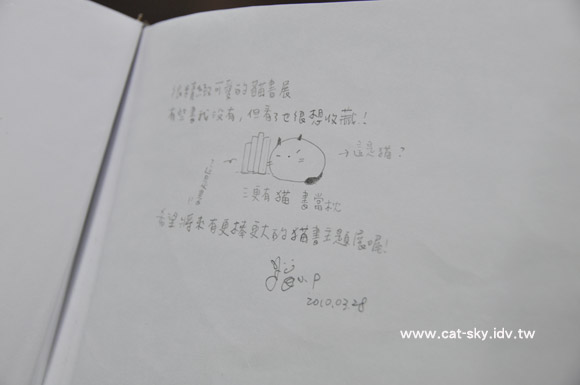 很精緻可愛的貓書展
有些書我沒有，但看了也很想收藏！
→這是貓？
三更有貓 書當枕
希望將來有更棒更大的貓書主題展喔！
貓小P
2010.03.28
www.cat-sky.idv.tw